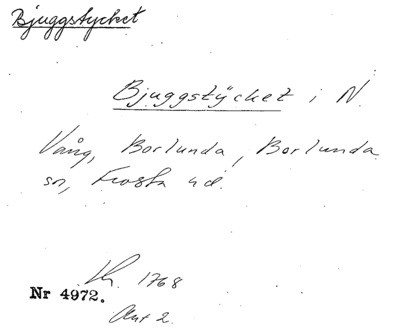 Bjuggstycket
Bjuggstÿcket i N.
Vång, Borlunda, Borlunda
sn, Frosta hd.
1768
Nr 4972.
Akt 2.